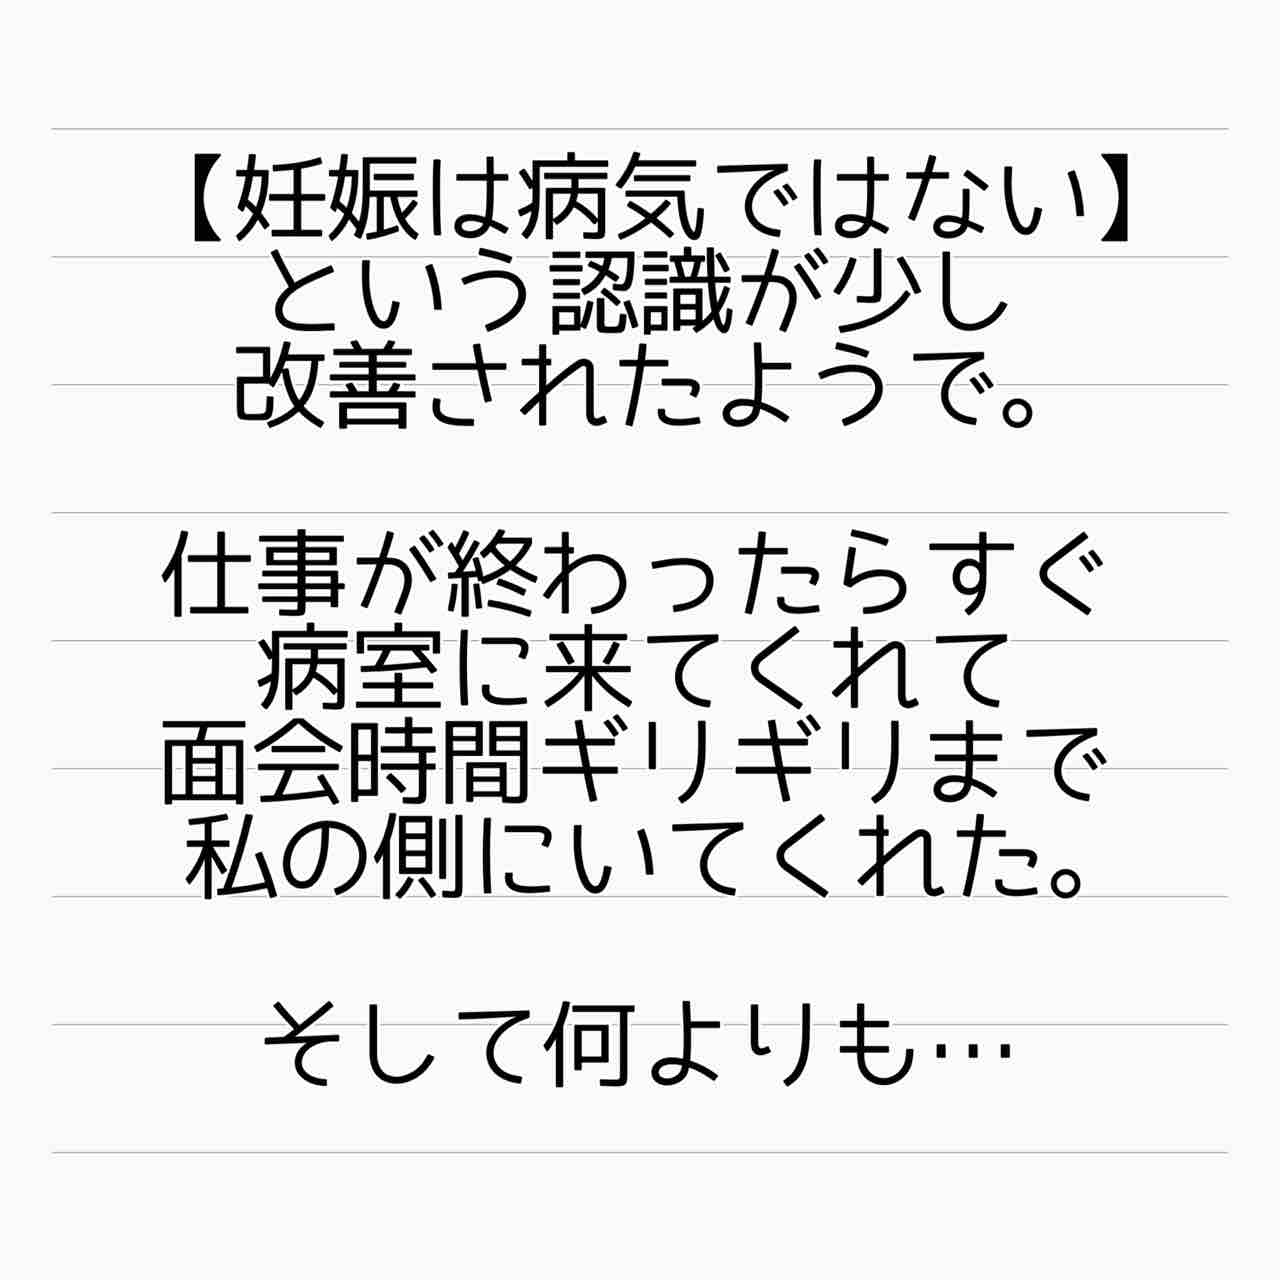 【妊娠は病気ではない】
という認識が少し
改善されたようで。
仕事が終わったらすぐ
病室に来てくれて
面会時間ギリギリまで
私の側にいてくれた。
そして何よりも…